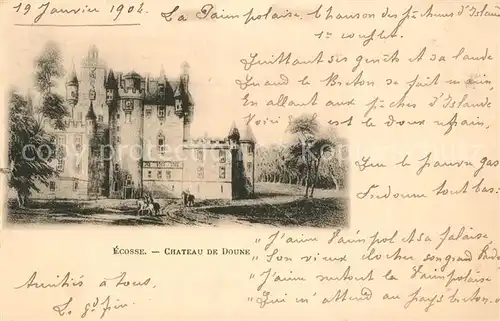 19 Janvier 1904. La Paimpolaise. Chanson des pêcheurs d'Islande
1er couplet.
Quittant ses genêts et sa lande
Quand le Breton se fait marin,
En allant aux pêches d'Islande
Voici est le doux refrain,
Que le pauvre gas
Fredonne tout bas:
"J'aime Paimpol et sa falaise
"Son vieux clocher son grand Pardon
"J'aime surtout la Paimpolaise
"Qui m'attend au pays breton.
ÉCOSSE. — CHATEAU DE DOUNE
Amitiés à tous.